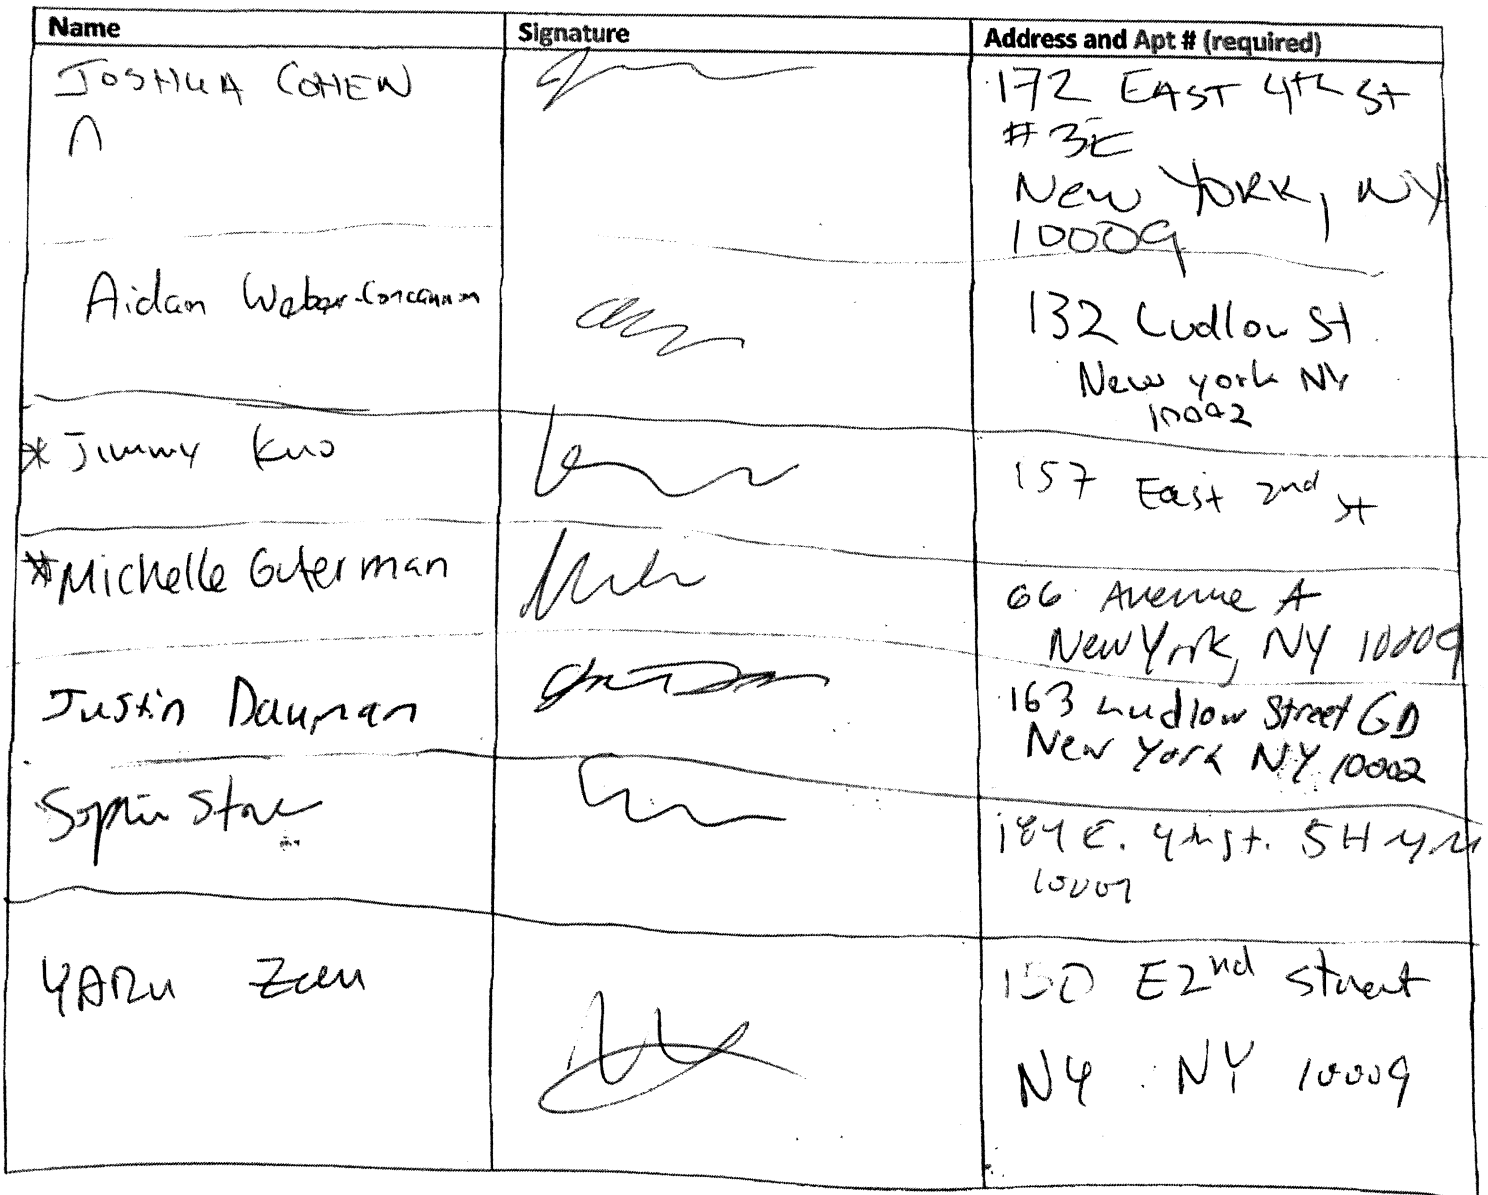 Name Signature Address and Apt # (required)
JOSHUA COHEN 172 EAST 4th St
#3E
New YORK, NY
10009
Aidan Weber-Concannon 132 Ludlow St
New york NY
10002
* Jimmy Kuo 157 East 2nd st
*Michelle Guterman 66 Avenue A
New York, NY 10009
Justin Dauman 163 Ludlow Street GD
New York NY 10002
Sophie Stone E. 4th st. 5H
YARU 150 E 2nd Street
NY NY 10009